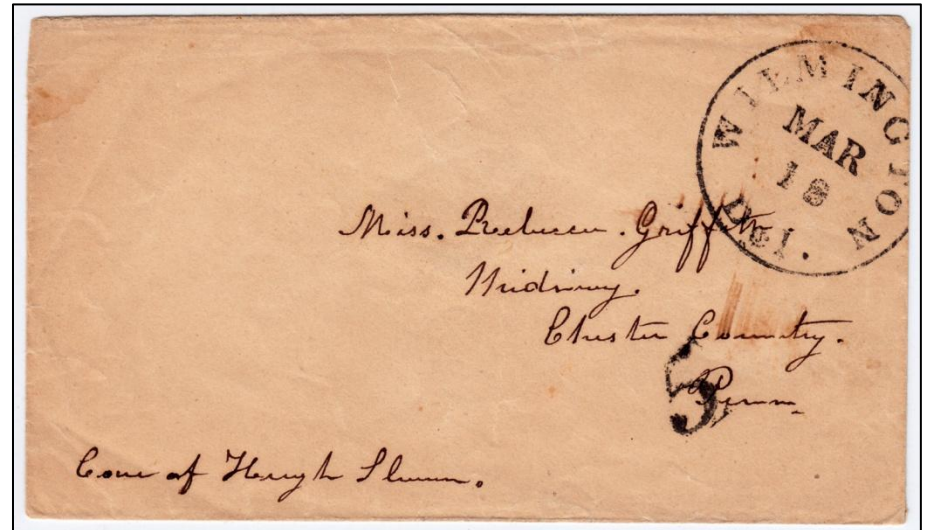 WILMINGTON Del.
MAR
18
Miss. Rebecca. Griffith
Midway.
Chester Country.
5
Penn
Care of Hugh